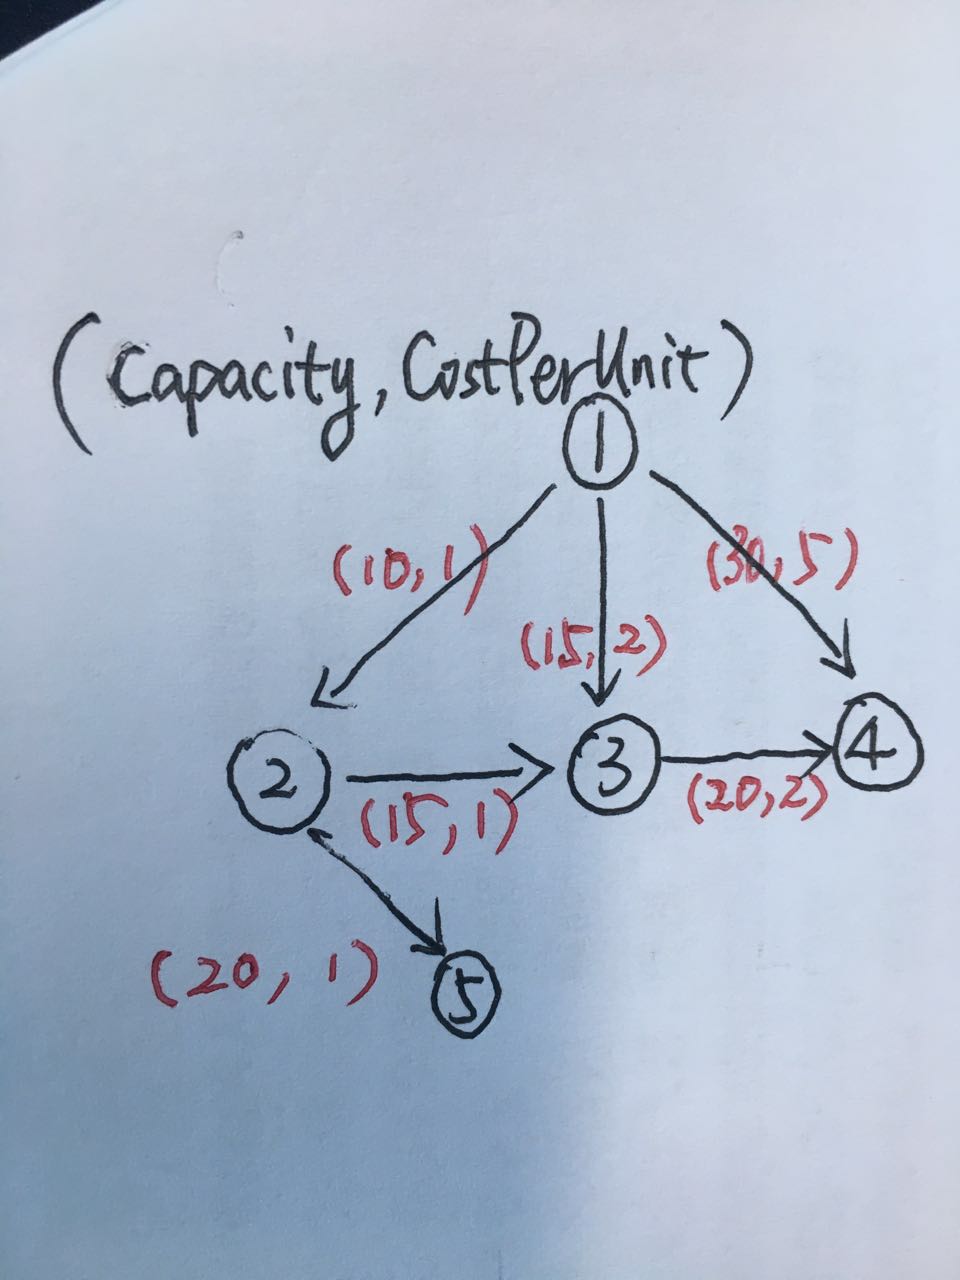 (Capacity, CostPerUnit)
1
(10, 1)
(30, 5)
(15, 2)
2
3
4
(15, 1)
(20, 2)
(20, 1)
5